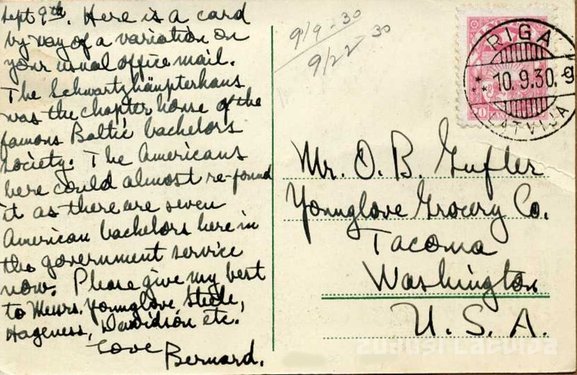 Sept 9th. Here is a card
by way of a variation on
your usual office mail.
The Schwartzhäupterhaus
was the chapter house of the
famous Baltic bachelors
society. The Americans
here could almost re-found
it as there are seven
American bachelors here in
the government service
now. Please give my best
to Messrs. Younglove, Steele,
Hageness, Davidson etc.
Love
Bernard.
9/9-30
9/22 30
RIGA
10.9.30. g
LATVIJA
Mr. O. B. Gufler
Younglove Grocery Co.
Tacoma
Washington
U. S. A.